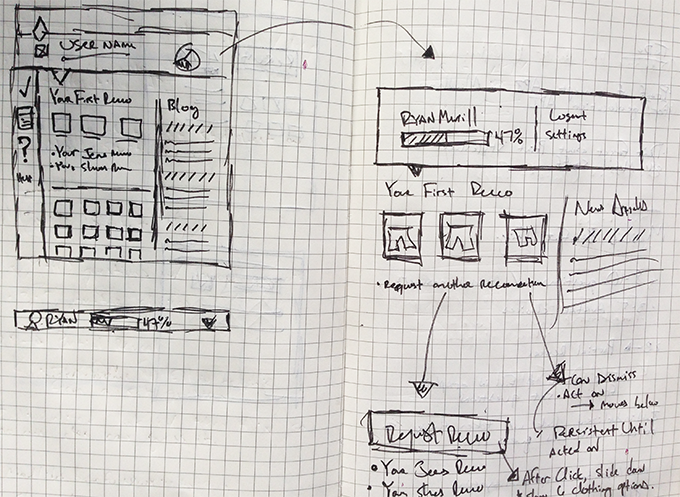 USER NAME
Your First Reco
Blog
• Your Jeans Reco
?
RYAN 47%
RYAN Murill
47%
Logout
settings
Your First Reco
New Articles
• Request another Recommendation
Can Dismiss
• Act on
→ moves below
Persistent Until
Acted on
Request Reco
• Your Jeans Reco
• Your shoes Reco
After Click, slide down
clothing options.